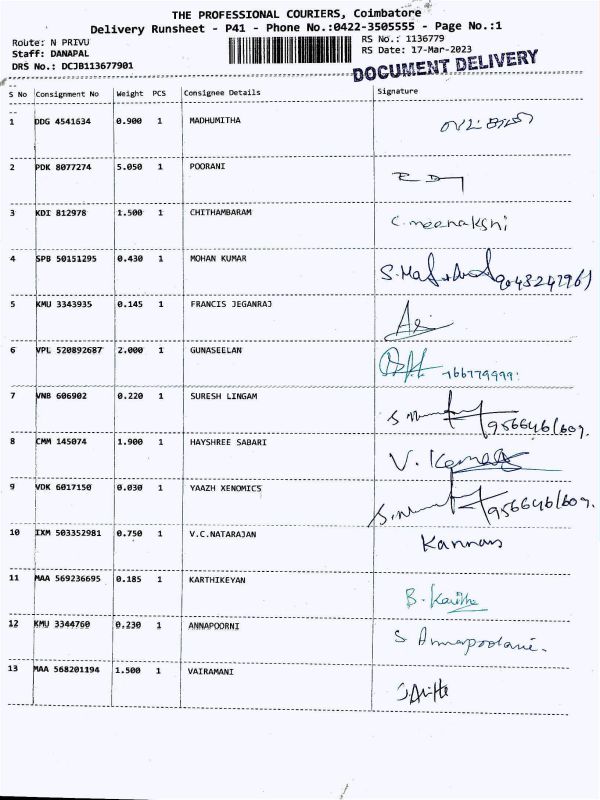 THE PROFESSIONAL COURIERS, Coimbatore
Delivery Runsheet - P41 - Phone No.:0422-3505555 - Page No.:1
Route: N PRIVU RS No.: 1136779
Staff: DANAPAL RS Date: 17-Mar-2023
DRS No.: DCJB113677901
DOCUMENT DELIVERY
S No Consignment No Weight PCS Consignee Details Signature
1 DDG 4541634 0.900 1 MADHUMITHA
2 PDK 8077274 5.050 1 POORANI
3 KDI 812978 1.500 1 CHITHAMBARAM C.meenakshi
4 SPB 50151295 0.430 1 MOHAN KUMAR
5 KMU 3343935 0.145 1 FRANCIS JEGANRAJ
6 VPL 520892687 2.000 1 GUNASEELAN
7 VNB 606902 0.220 1 SURESH LINGAM
8 CMM 145074 1.900 1 HAYSHREE SABARI
9 VDK 6017150 0.030 1 YAAZH XENOMICS
10 IXM 503352981 0.750 1 V.C.NATARAJAN Kannan
11 MAA 569236695 0.185 1 KARTHIKEYAN
12 KMU 3344760 0.230 1 ANNAPOORNI
13 MAA 568201194 1.500 1 VAIRAMANI